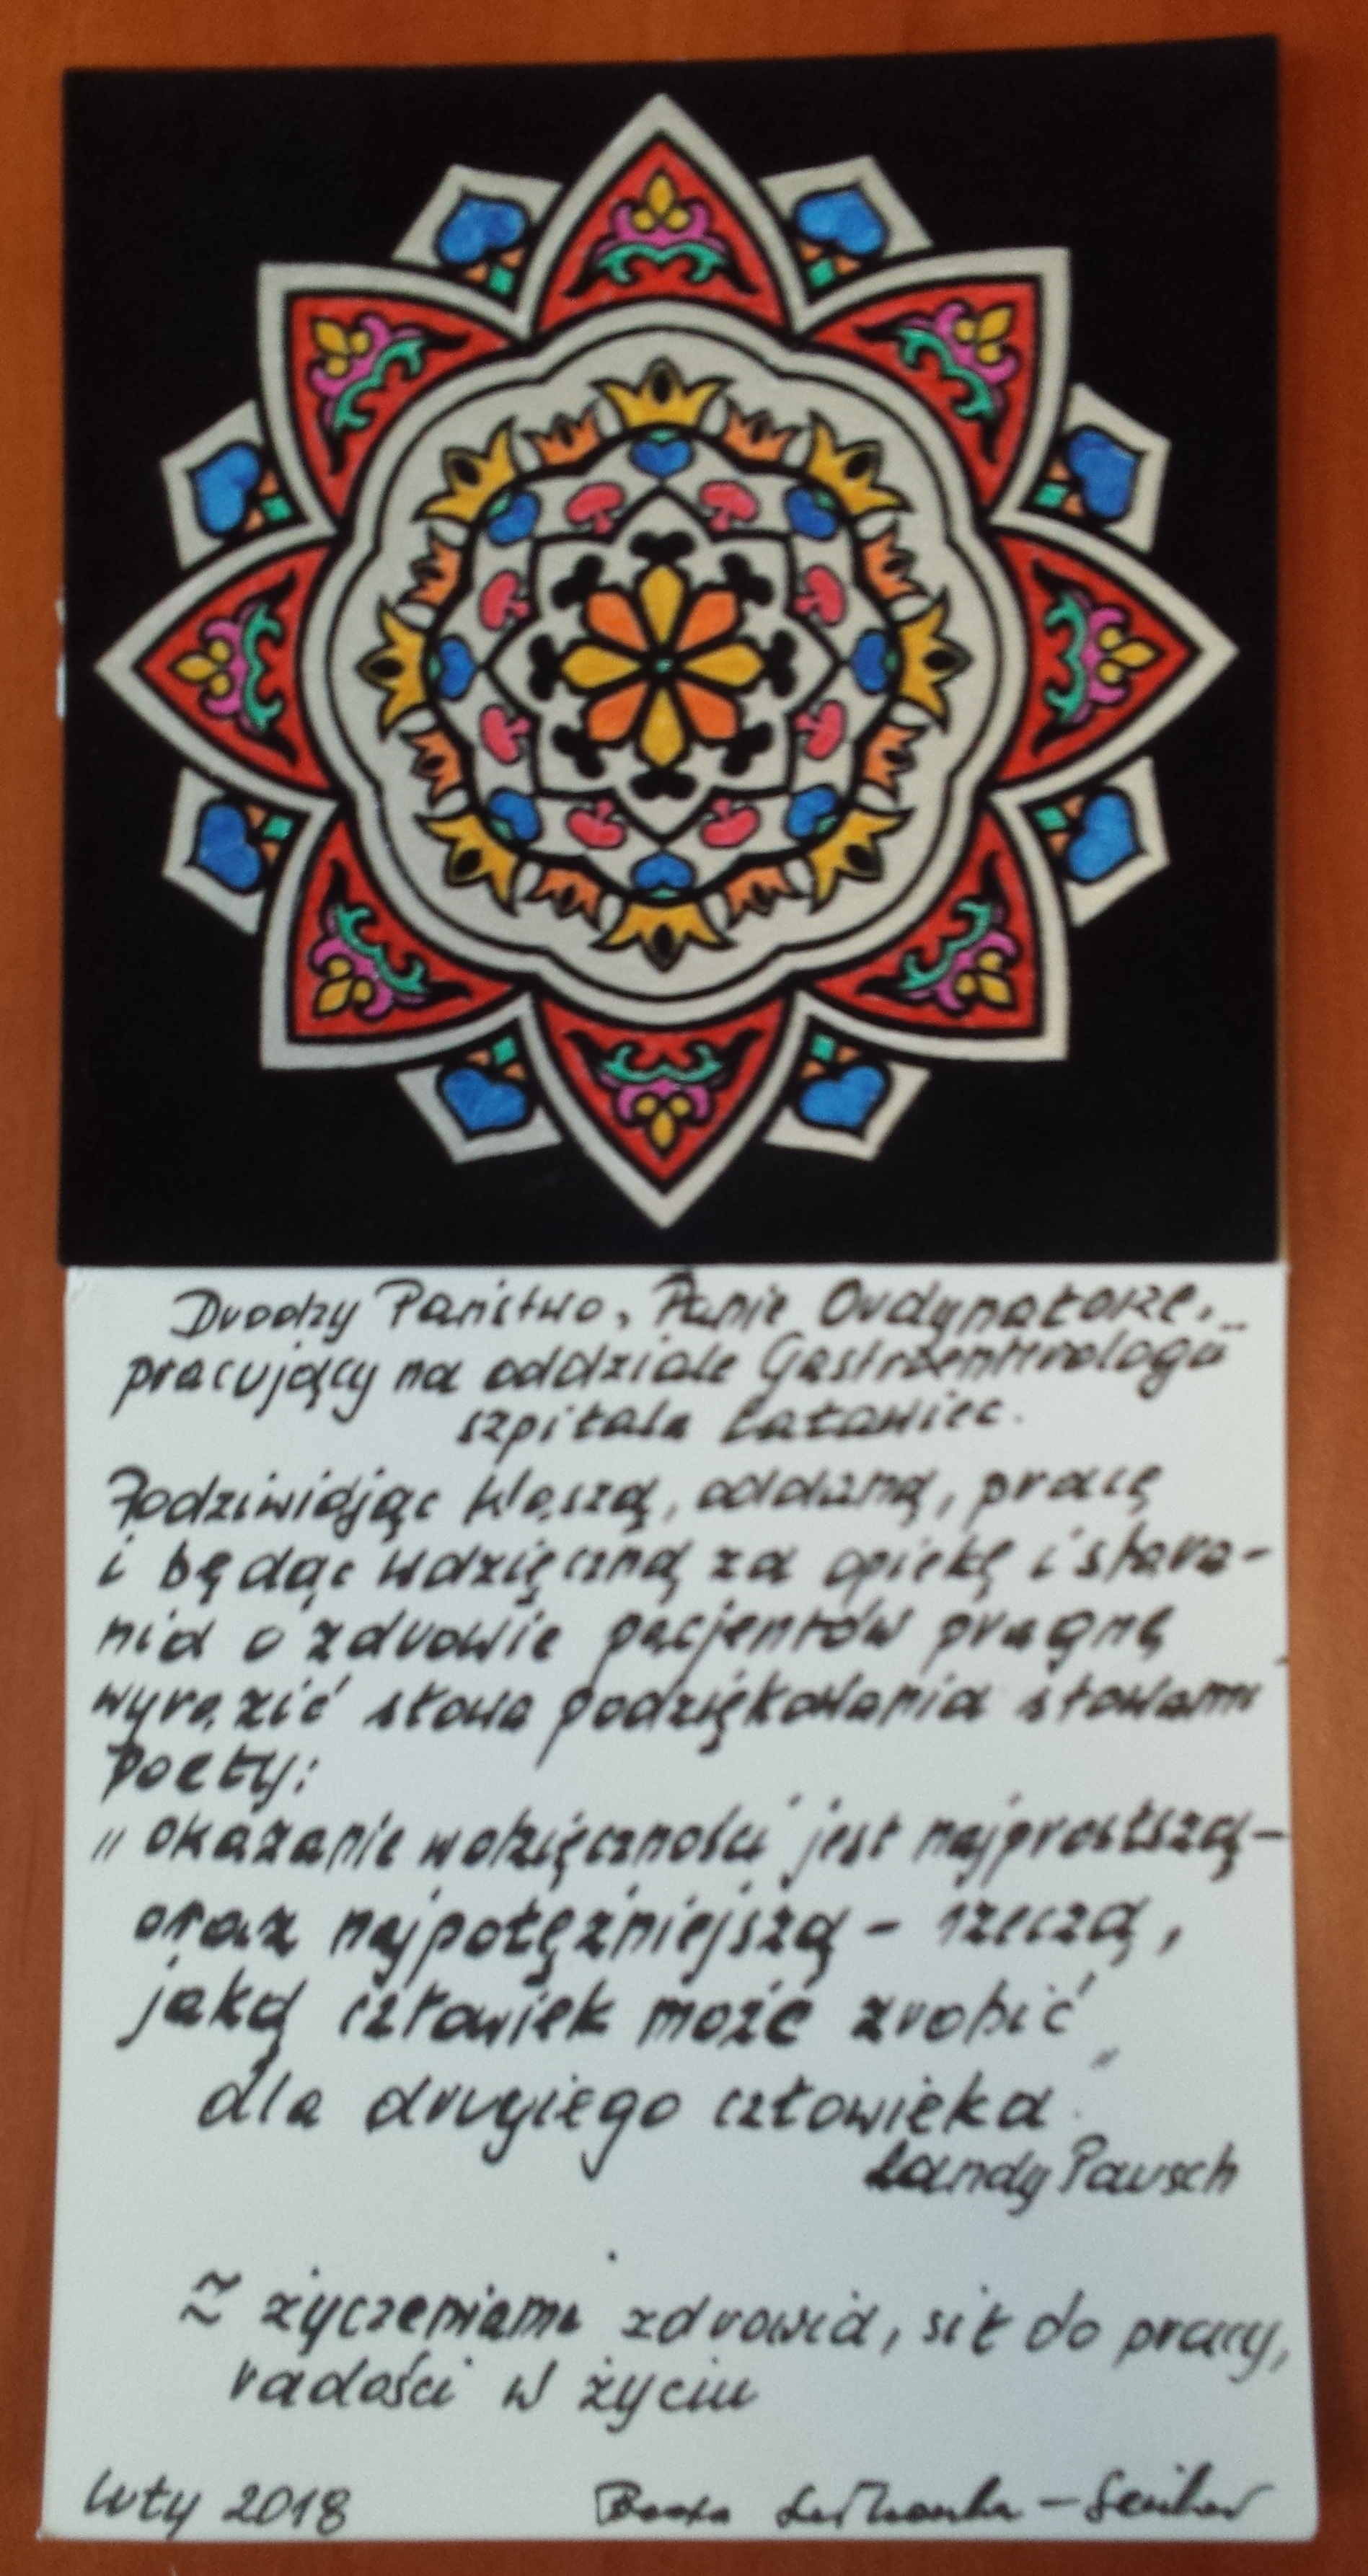 Drodzy Państwo, Panie Ordynatorze,
pracujący na oddziale Gastroenterologii
szpitala Latawiec.
Podziwiając Waszą, oddaną, pracę
i będąc wdzięczną za opiekę i stara-
nia o zdrowie pacjentów pragnę
wyrazić słowa podziękowania słowami
poety:
„Okazanie wdzięczności jest najprostszą -
oraz najpotężniejszą - rzeczą,
jaką człowiek może zrobić
dla drugiego człowieka."
Randy Pausch
Z życzeniami zdrowia, sił do pracy,
radości w życiu
luty 2018 Beata